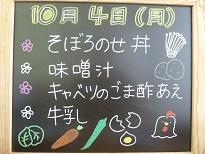 10月4日(月)
そぼろのせ丼
味噌汁
キャベツのごま酢あえ
牛乳